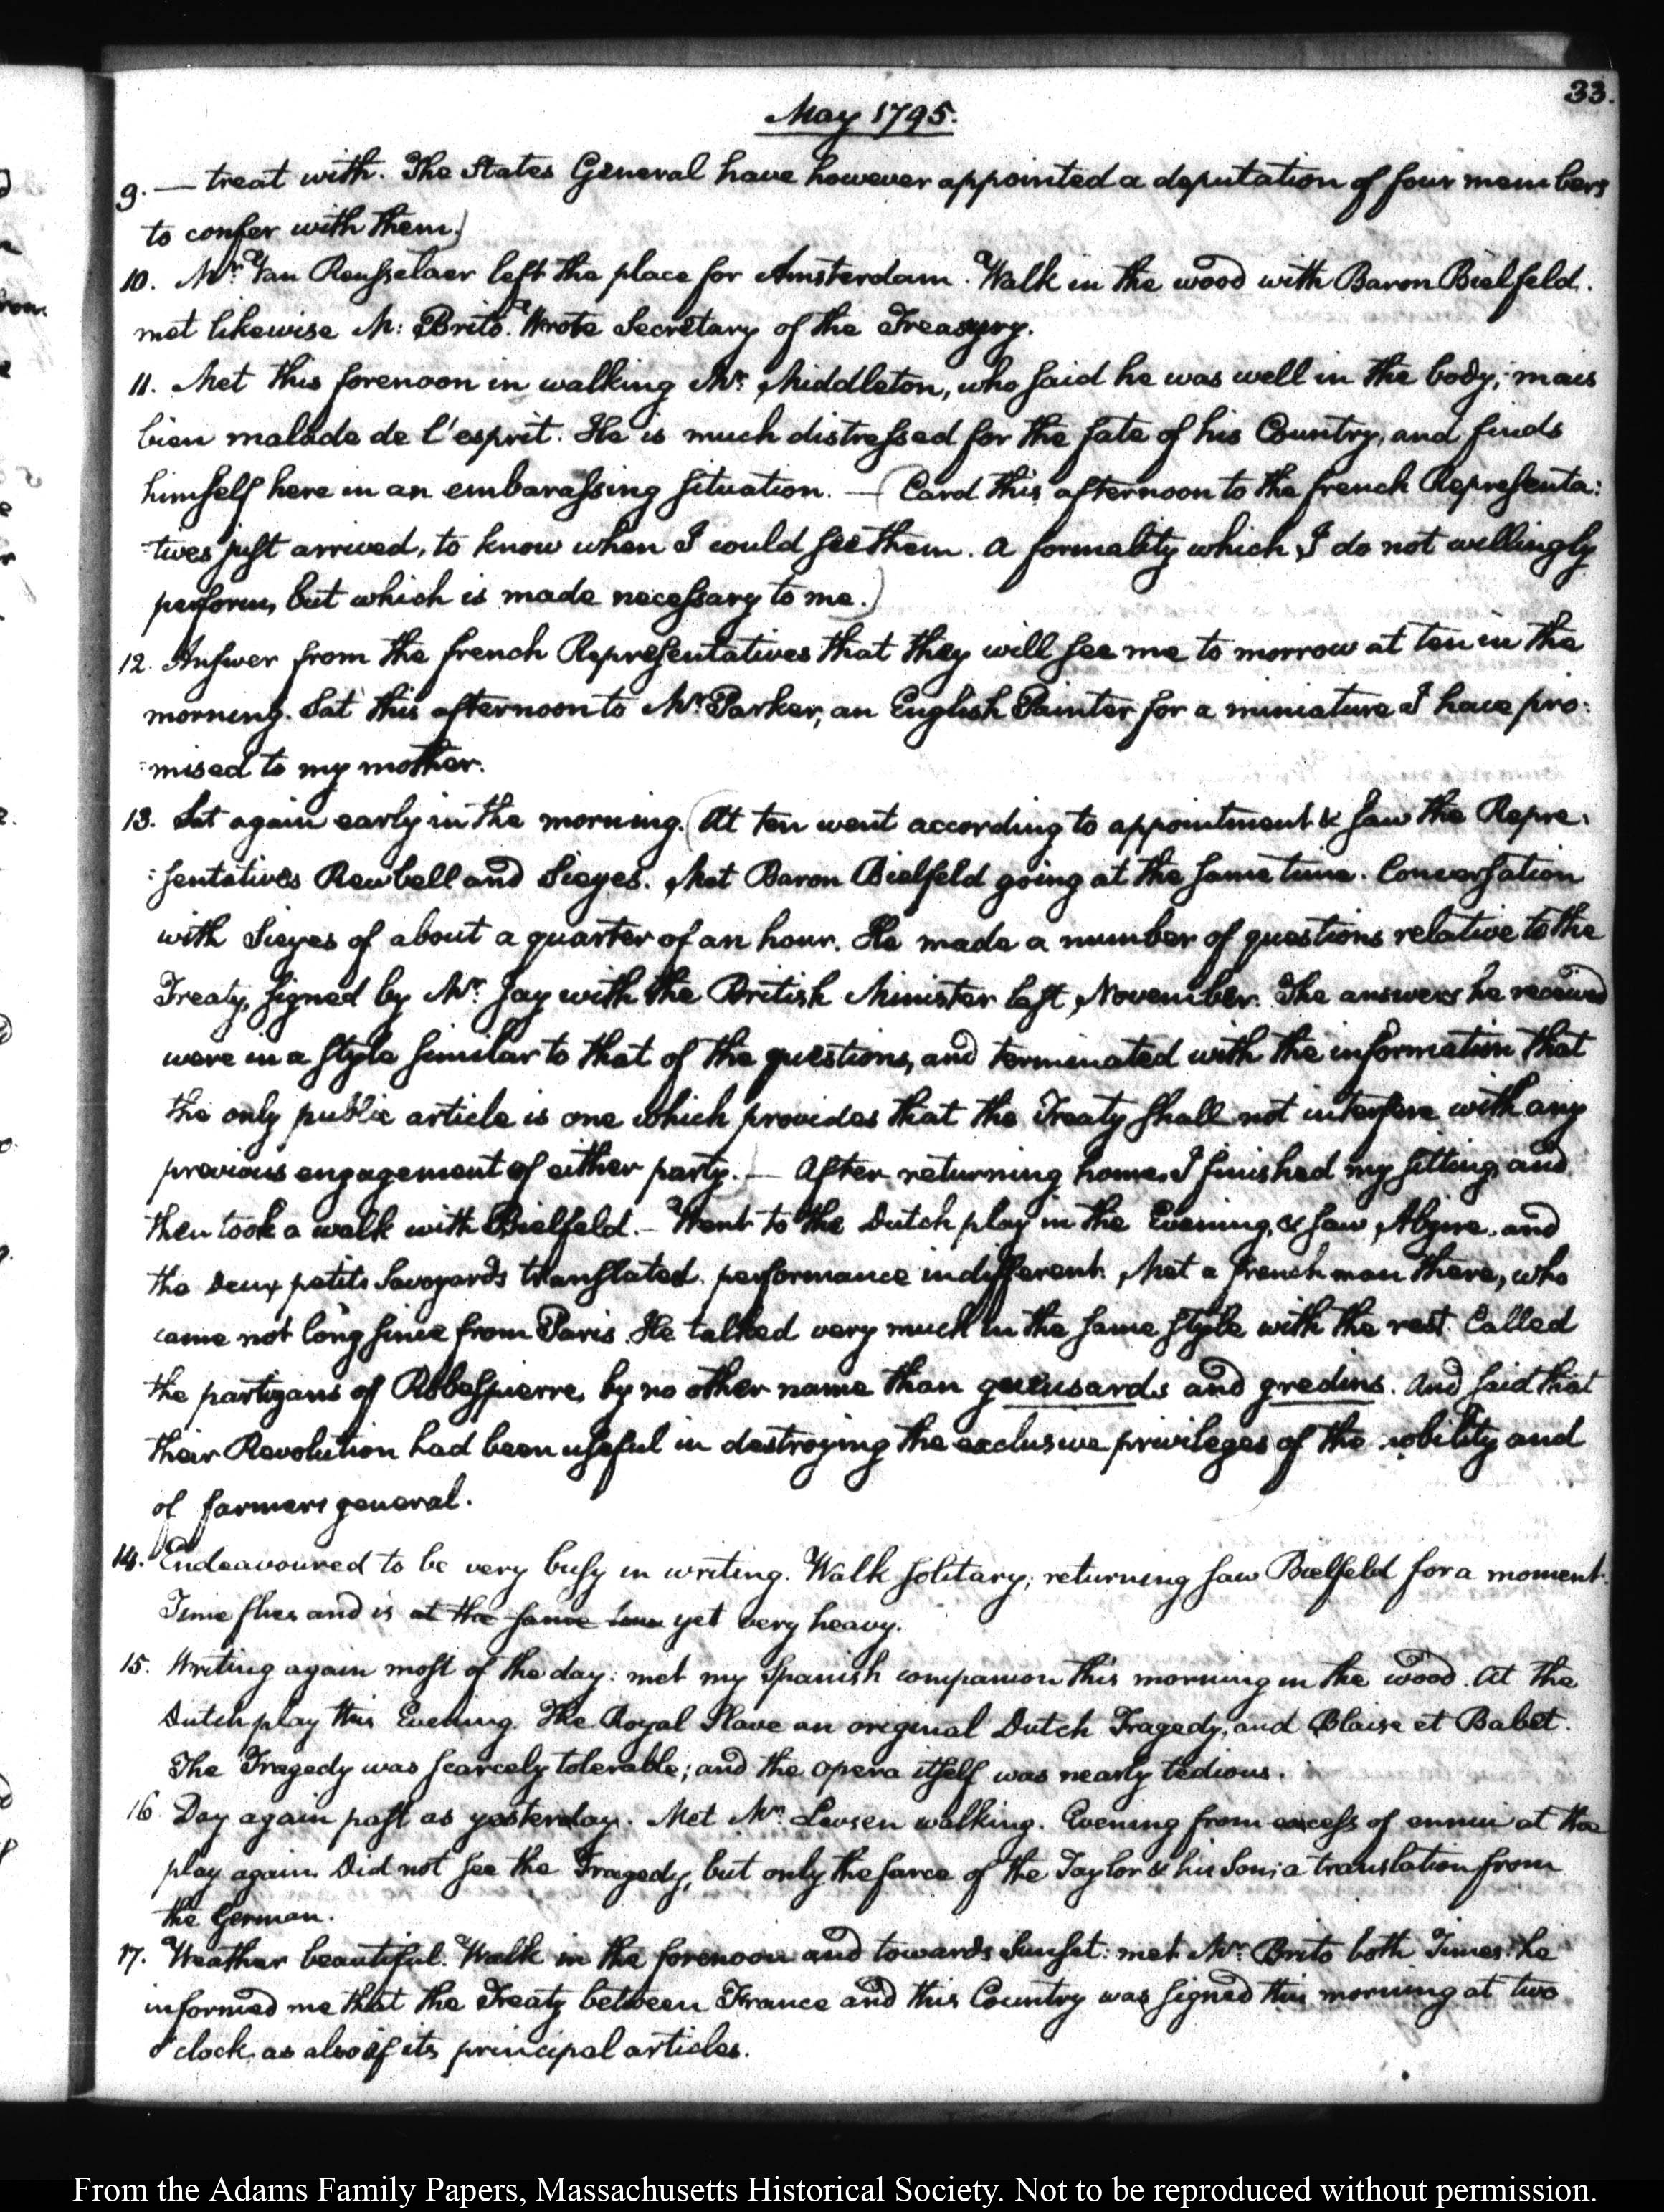 33.
May 1795.
9. — treat with. The States General have however appointed a deputation of four members
to confer with them.)
10. Mr. Van Rensselaer left the place for Amsterdam. Walk in the wood with Baron Bielfeld.
met likewise M: Brito. Wrote Secretary of the Treasury.
11. Met this forenoon in walking Mr. Middleton, who said he was well in the body; mais
bien malade de l'esprit. He is much distressed for the fate of his Country, and finds
himself here in an embarassing situation. — (Card this afternoon to the french Representa:
:tives just arrived, to know when I could see them. A formality which I do not willingly
perform, but which is made necessary to me.)
12. Answer from the french Representatives that they will see me to morrow at ten in the
morning. Sat this afternoon to Mr. Parker, an English Painter for a miniature I have pro:
:mised to my mother.
13. Sat again early in the morning. (At ten went according to appointment & saw the Repre:
:sentatives Rewbell and Sieyes. Met Baron Bielfeld going at the same time. Conversation
with Sieyes of about a quarter of an hour. He made a number of questions relative to the
Treaty, signed by Mr. Jay with the British Minister last November. The answers he received
were in a style similar to that of the questions, and terminated with the information that
the only public article is one which provides that the Treaty shall not interfere with any
previous engagement of either party.) — After returning home, I finished my sitting, and
then took a walk with Bielfeld. — Went to the Dutch play in the Evening, & saw and
the Deux petits Savoyards translated. performance indifferent. Met a french man there, who
came not long since from Paris. He talked very much in the same style with the rest. Called
the partizans of Robespierre, by no other name than gueusards and gredins. And said that
their Revolution had been useful in destroying the exclusive privileges of the nobility and
of farmers general.
14. Endeavoured to be very busy in writing. Walk solitary; returning saw Bielfeld for a moment.
Time flies and is at the same time yet very heavy.
15. Writing again most of the day: met my Spanish companion this morning in the wood. At the
Dutch play this Evening. The Royal Slave an original Dutch Tragedy, and Blaise et Babet.
The Tragedy was scarcely tolerable; and the opera itself was nearly tedious.
16. Day again past as yesterday. Met Mr. Levsen walking. Evening from excess of ennui at the
play again. Did not see the Tragedy, but only the farce of the Taylor & his Son; a translation from
the German.
17. Weather beautiful. Walk in the forenoon and towards Sunset: met Mr. Brito both Times: he
informed me that the Treaty between France and this Country was signed this morning at two
o'clock, as also of its principal articles.
From the Adams Family Papers, Massachusetts Historical Society. Not to be reproduced without permission.